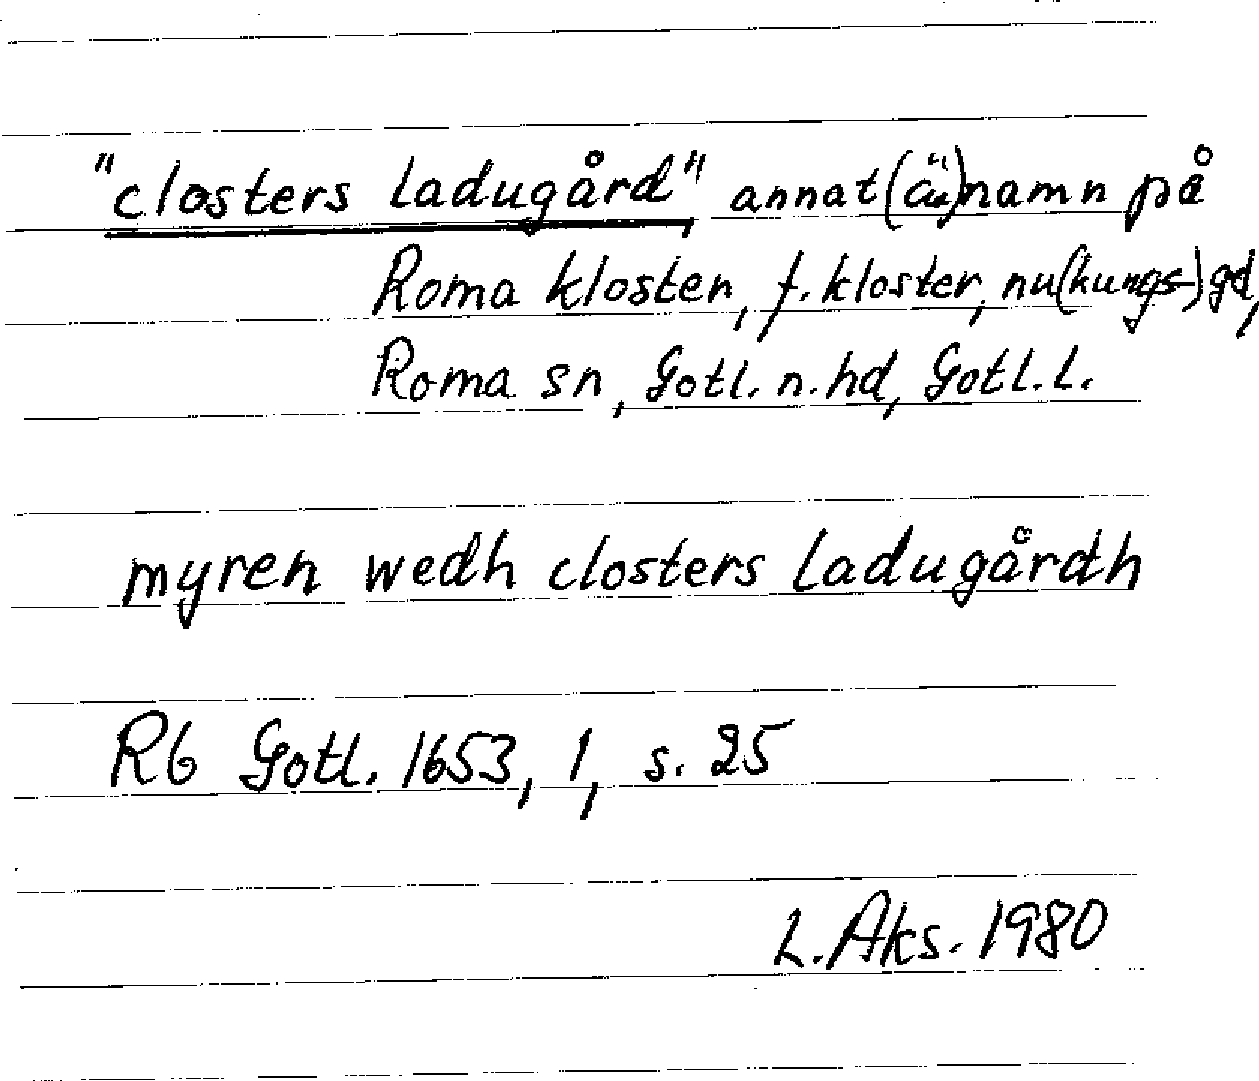 "closters ladugård", annat (ä)namn på
Roma klosten, f. kloster, nu (kungs-)gd,
Roma sn, Gotl. n. hd, Gotl. l.
myren wedh closters ladugårdh
Rb Gotl. 1653, 1, s. 25
L. Aks. 1980